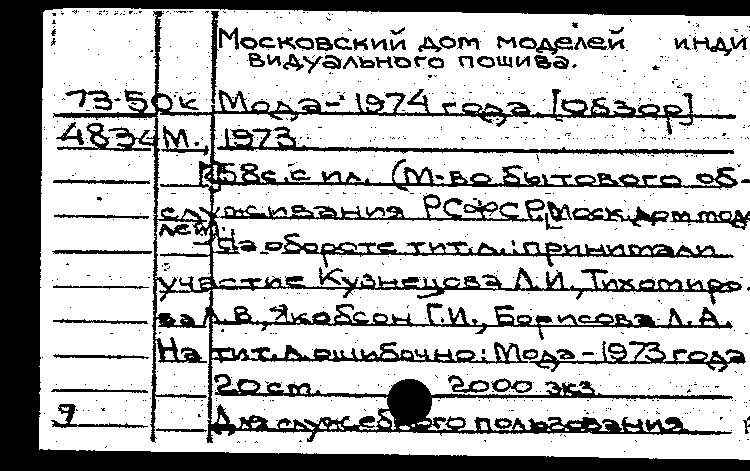 Московский дом моделей инди
видуального пошива.
73-50к Мода-1974 года. [Обзор]
4834 М., 1973.
58с. с ил. (М-во бытового об-
служивания РСФСР, Моск. дом моде
лей)
На обороте тит.л.: принимали
участие Кузнецова Л.И., Тихомиро-
ва Л.В., Якобсон Г.И., Борисова Л.А.
На тит.л. ошибочно: Мода-1973 года
20 см. 2000 экз.
9 Для служебного пользования